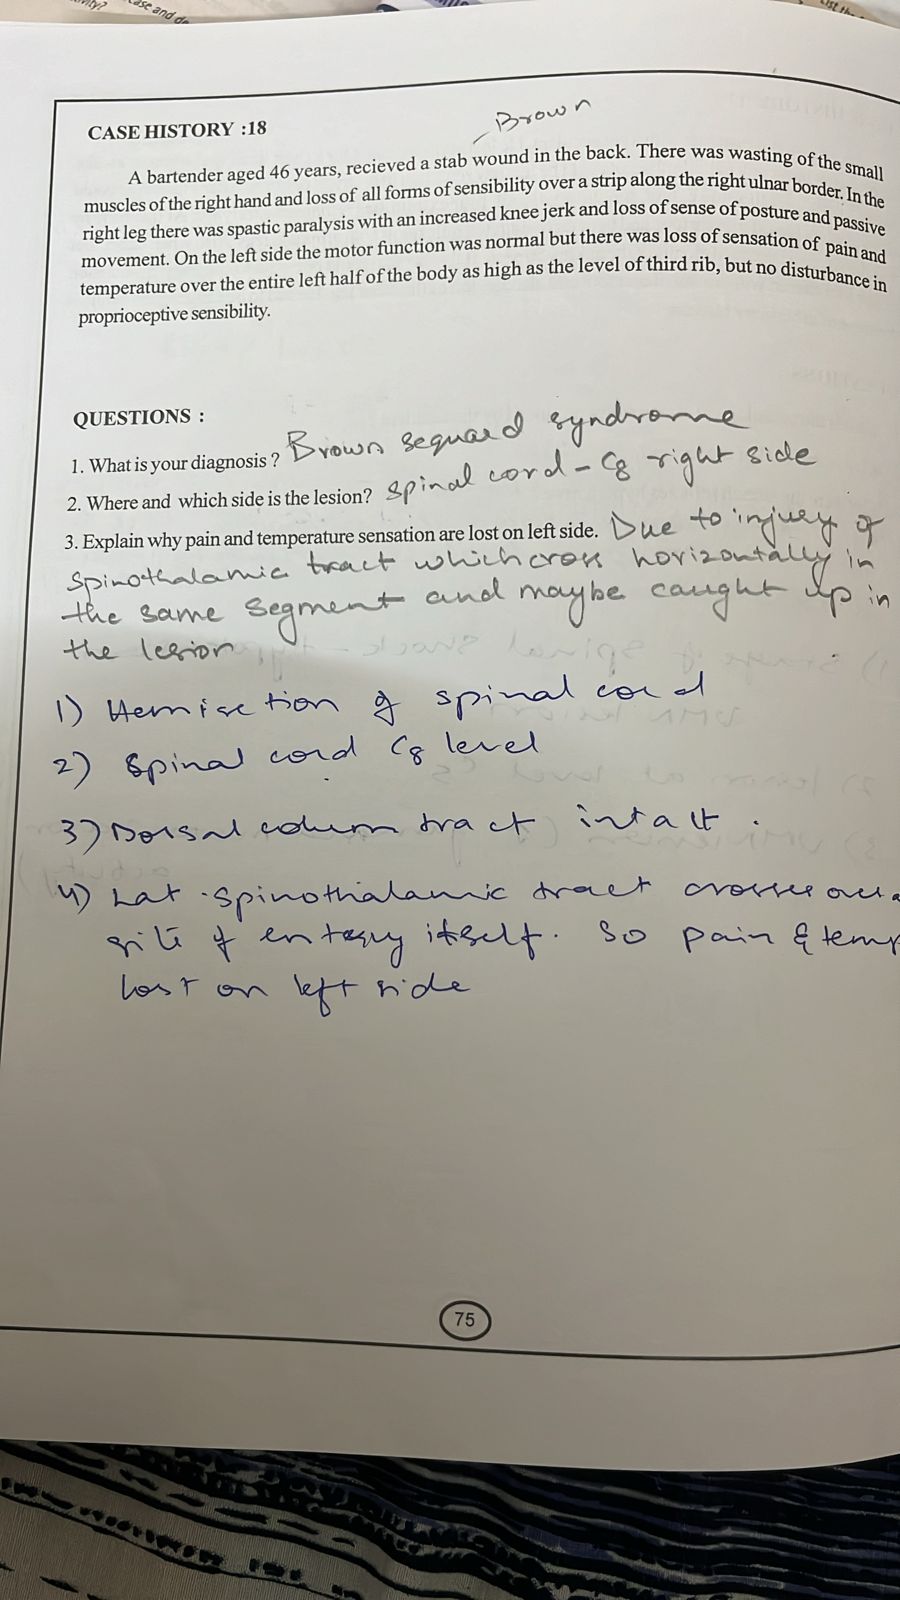 ase and de
vity?
List the
Brown
CASE HISTORY :18
A bartender aged 46 years, recieved a stab wound in the back. There was wasting of the small
muscles of the right hand and loss of all forms of sensibility over a strip along the right ulnar border. In the
right leg there was spastic paralysis with an increased knee jerk and loss of sense of posture and passive
movement. On the left side the motor function was normal but there was loss of sensation of pain and
temperature over the entire left half of the body as high as the level of third rib, but no disturbance in
proprioceptive sensibility.
QUESTIONS :
1. What is your diagnosis ? Brown sequard syndrome
2. Where and which side is the lesion? Spinal cord - C8 right side
3. Explain why pain and temperature sensation are lost on left side. Due to injury of
Spinothalamic tract which cross horizontally in
the same segment and maybe caught up in
the lesion
1) Hemisection of spinal cord
2) Spinal cord C8 level
3) Dorsal column tract intalt .
4) Lat. spinothalamic tract crosses over a
site of entery itself. So pain & temp
lost on left side
75